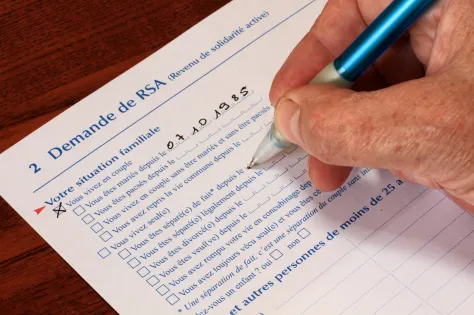 2 Demande de RSA (Revenu de solidarité active)
Votre situation familiale
Vous vivez en couple
Vous êtes mariés depuis le 07 10 1985
Vous êtes pacsés depuis le
Vous vivez en couple sans être mariés et sans être pacsés
Vous avez repris la vie commune depuis le
Vous vivez seul(e)
Vous êtes séparé(e) de fait* depuis le
Vous êtes séparé(e) légalement depuis le
Vous êtes divorcé(e) depuis le
Vous êtes veuf(ve) depuis le
Vous avez rompu votre vie en concubinage depuis
Vous avez toujours vécu seul(e) et vous êtes
* Une séparation de fait, c'est une séparation du couple sans
-vous un enfant ? oui non
et autres personnes de moins de 25 a